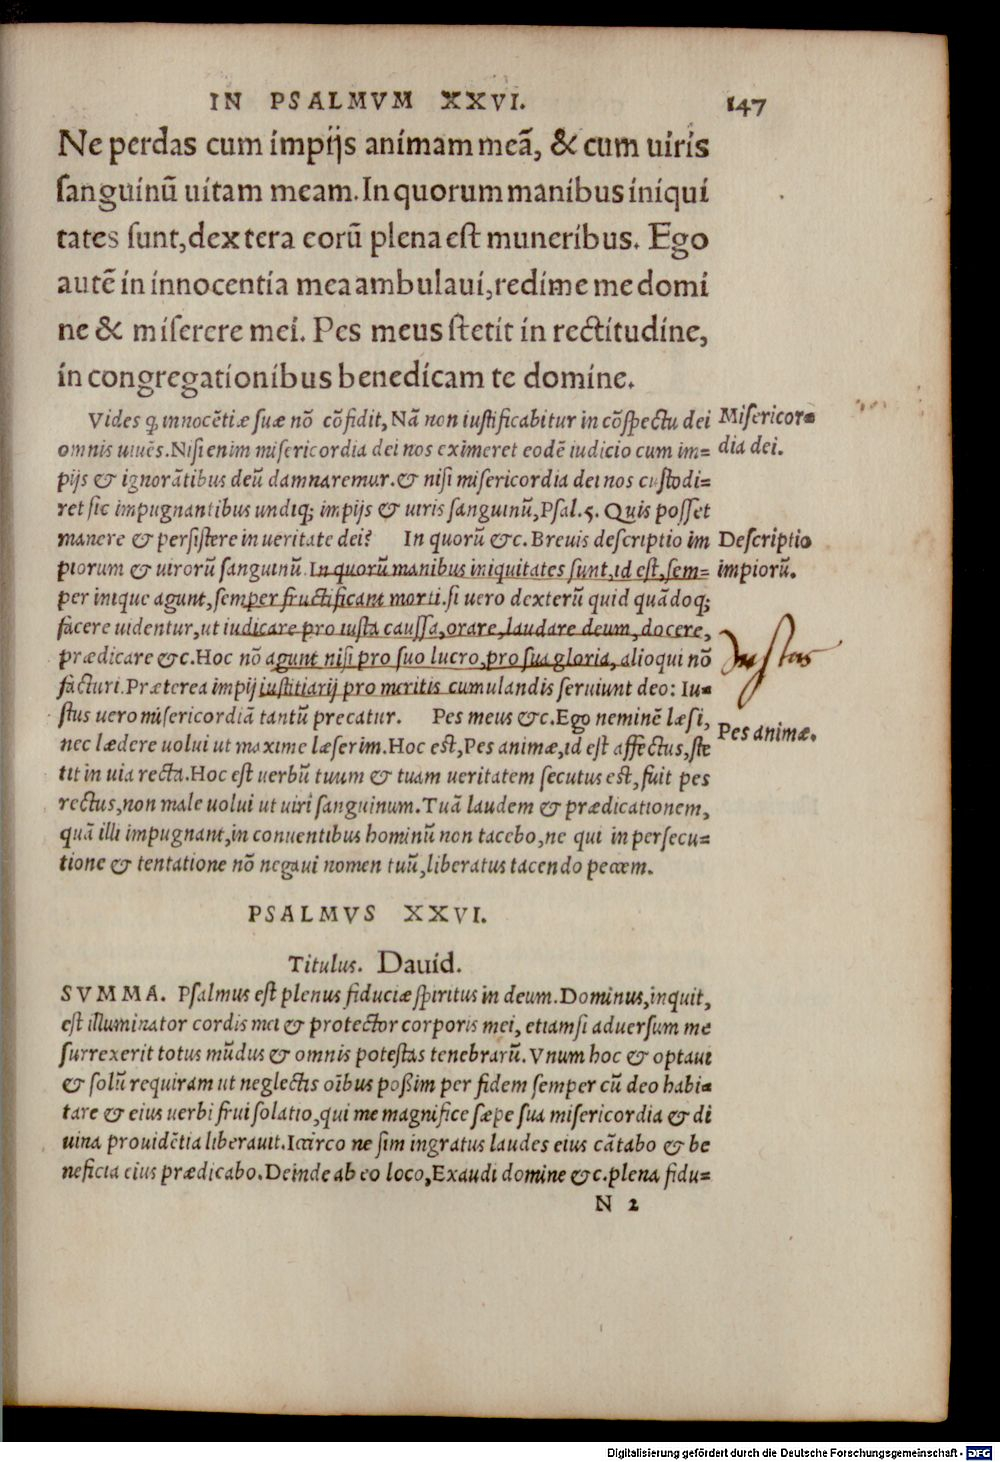 IN PSALMVM XXVI. 147
Ne perdas cum impijs animam meã, & cum uiris
sanguinũ uitam meam. In quorum manibus iniqui
tates sunt, dextera eorũ plena est muneribus. Ego
autẽ in innocentia mea ambulaui, redime me domi
ne & miserere mei. Pes meus stetit in rectitudine,
in congregationibus benedicam te domine.
Vides ꝙ innocẽtiæ suæ nõ cõfidit, Nã non iustificabitur in cõspectu dei
omnis uiuẽs. Nisi enim misericordia dei nos eximeret eodẽ iudicio cum im=
pijs & ignorãtibus deũ damnaremur. & nisi misericordia dei nos custodi=
ret sic impugnantibus undiq; impijs & uiris sanguinũ, Psal. 5. Quis posset
manere & persistere in ueritate dei? In quorũ &c. Breuis descriptio im
piorum & uirorũ sanguinũ. In quorũ manibus iniquitates sunt, id est, sem=
per inique agunt, semper fructificant morti. si uero dexterũ quid quãdoq;
facere uidentur, ut iudicare pro iusta caussa, orare, laudare deum, docere,
prædicare &c. Hoc nõ agunt nisi pro suo lucro, pro sua gloria, alioqui nõ
facturi. Præterea impij iustitiarij pro meritis cumulandis seruiunt deo: Iu=
stus uero misericordiã tantũ precatur. Pes meus &c. Ego neminẽ læsi,
nec lædere uolui ut maxime læserim. Hoc est, Pes animæ, id est affectus, ste
tit in uia recta. Hoc est uerbũ tuum & tuam ueritatem secutus est, fuit pes
rectus, non male uolui ut uiri sanguinum. Tuã laudem & prædicationem,
quã illi impugnant, in conuentibus hominũ non tacebo, ne qui in persecu=
tione & tentatione nõ negaui nomen tuũ, liberatus tacendo peccem.
Misericor=
dia dei.
Descriptio
impiorũ.
Iustus
Pes animæ.
PSALMVS XXVI.
Titulus. Dauid.
SVMMA. Psalmus est plenus fiduciæ spiritus in deum. Dominus, inquit,
est illuminator cordis mei & protector corporis mei, etiamsi aduersum me
surrexerit totus mũdus & omnis potestas tenebrarũ. Vnum hoc & optaui
& solũ requiram ut neglectis oĩbus poßim per fidem semper cũ deo habi=
tare & eius uerbi frui solatio, qui me magnifice sæpe sua misericordia & di
uina prouidẽtia liberauit. Iccirco ne sim ingratus laudes eius cãtabo & be
neficia eius prædicabo. Deinde ab eo loco, Exaudi domine &c. plena fidu=
N 2
Digitalisierung gefördert durch die Deutsche Forschungsgemeinschaft - DFG